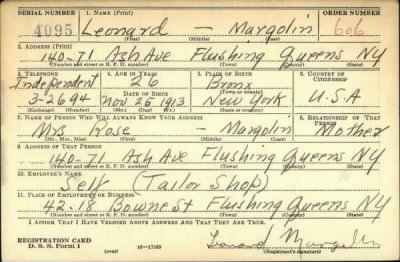 SERIAL NUMBER 1. NAME (Print) ORDER NUMBER
4095 Leonard — Margolin 606
(First) (Middle) (Last)
2. ADDRESS (Print)
140-71 Ash Ave Flushing Queens NY
(Number and street or R. F. D. number) (Town) (County) (State)
3. TELEPHONE 4. AGE IN YEARS 5. PLACE OF BIRTH 6. COUNTRY OF CITIZENSHIP
Independent 26 Bronx
DATE OF BIRTH (Town or county)
3-2694 Nov 25 1913 New York U.S.A
(Exchange) (Number) (Mo.) (Day) (Yr.) (State or country)
7. NAME OF PERSON WHO WILL ALWAYS KNOW YOUR ADDRESS 8. RELATIONSHIP OF THAT PERSON
Mrs Rose — Margolin Mother
(Mr., Mrs., Miss) (First) (Middle) (Last)
9. ADDRESS OF THAT PERSON
140-71 Ash Ave Flushing Queens NY
(Number and street or R. F. D. number) (Town) (County) (State)
10. EMPLOYER'S NAME
Self (Tailor Shop)
11. PLACE OF EMPLOYMENT OR BUSINESS
42-18 Bowne St Flushing Queens NY
(Number and street or R. F. D. number) (Town) (County) (State)
I AFFIRM THAT I HAVE VERIFIED ABOVE ANSWERS AND THAT THEY ARE TRUE.
REGISTRATION CARD
D. S. S. Form 1 (over) 16—17105 Leonard Margolin
(Registrant's signature)